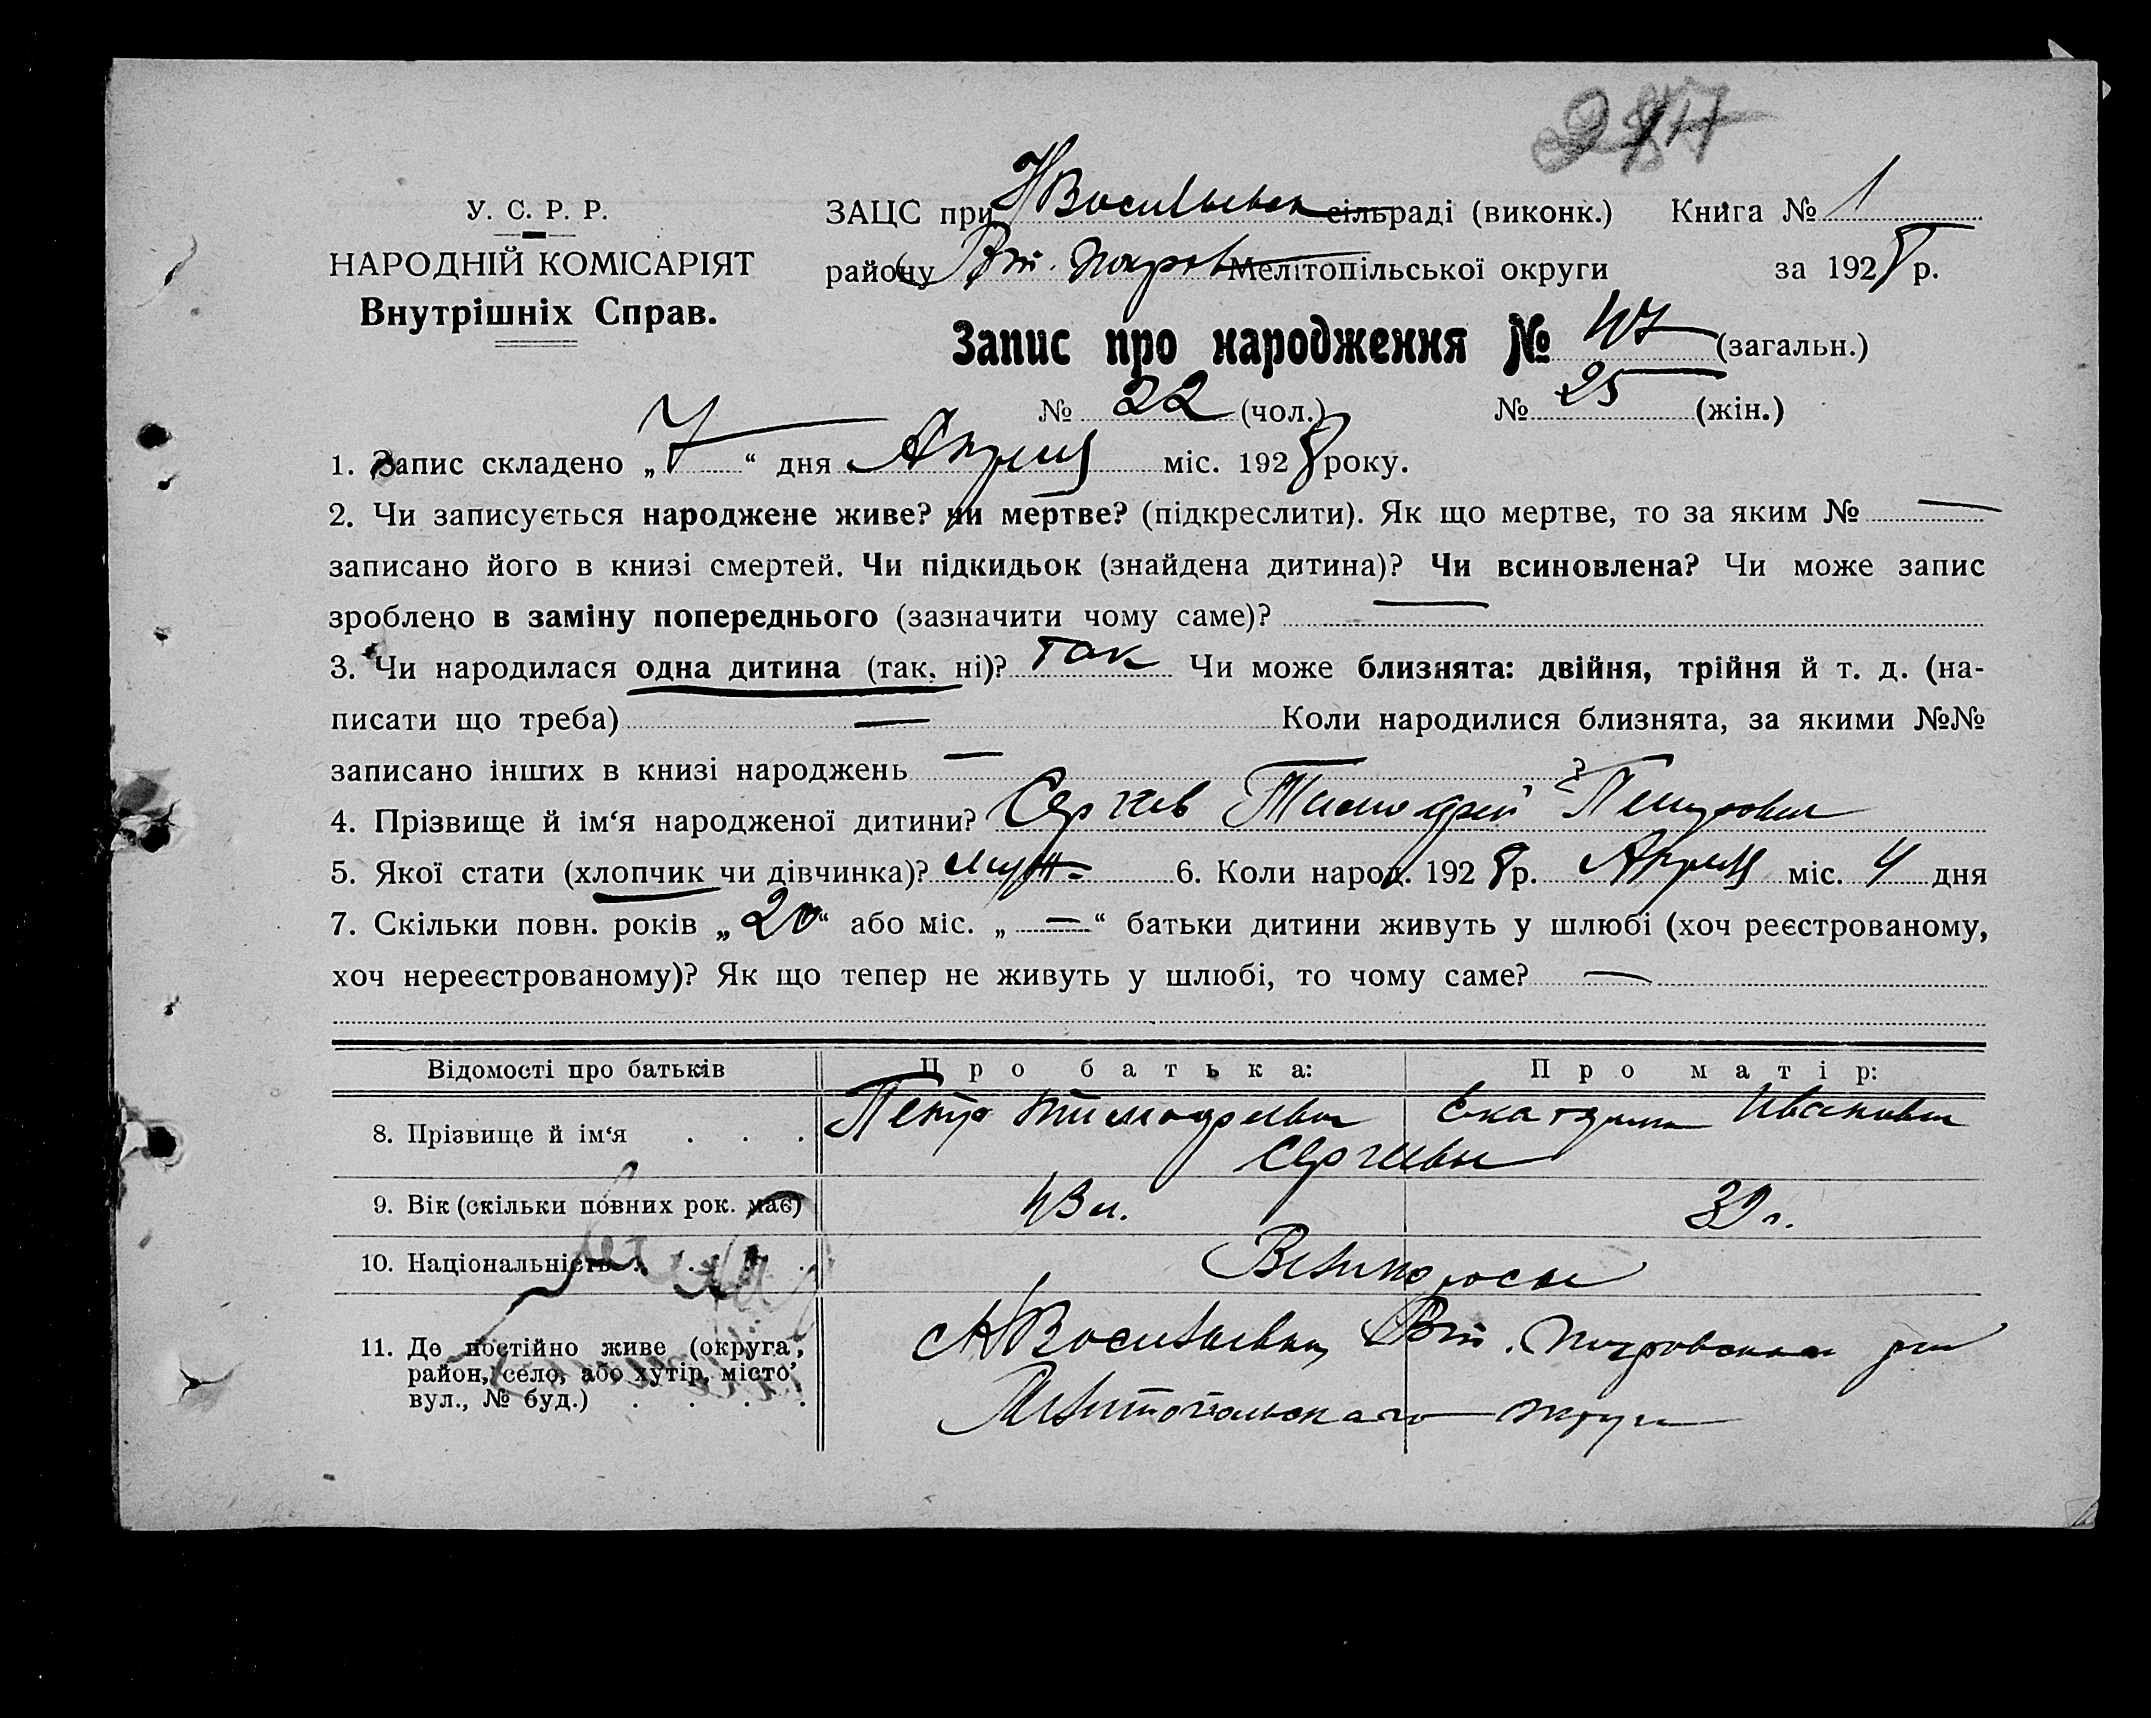 У. С. Р. Р.
НАРОДНІЙ КОМІСАРІЯТ
Внутрішніх Справ.
ЗАЦС при НВасильевск сільраді (виконк.) Книга № 1
району Вт. Покров Мелітопільської округи за 1928 р.
Запис про народження № 47 (загальн.)
№ 22 (чол.) № 25 (жін.)
1. Запис складено „ 7 “ дня Апреля міс. 1928 року.
2. Чи записується народжене живе? чи мертве? (підкреслити). Як що мертве, то за яким № —
записано його в книзі смертей. Чи підкидьок (знайдена дитина)? Чи всиновлена? Чи може запис
зроблено в заміну попереднього (зазначити чому саме)? —
3. Чи народилася одна дитина (так, ні)? так Чи може близнята: двійня, трійня й т. д. (на-
писати що треба) — Коли народилися близнята, за якими №№
записано інших в книзі народжень — ?
4. Прізвище й ім‘я народженої дитини? Сергеев Тимофей Петрович
5. Якої стати (хлопчик чи дівчинка)? муж- 6. Коли народ. 1928 р. Апреля міс. 4 дня
7. Скільки повн. років „ 20 “ або міс. „ — “ батьки дитини живуть у шлюбі (хоч реєстрованому,
хоч нереєстрованому)? Як що тепер не живуть у шлюбі, то чому саме? —
Відомості про батьків Про батька: Про матір:
8. Прізвище й ім‘я . . . Петр Тимофеевич Екатерина Ивановна
Сергеевы
9. Вік (скільки повних рок. має) 43 л. 39 л.
10. Національність Великороссы
11. Де постійно живе (округа, район, село, або хутір, місто, вул., № буд.) . . . . с НВасильевка, Вт. Покровского р-на
Мелитопольского округа